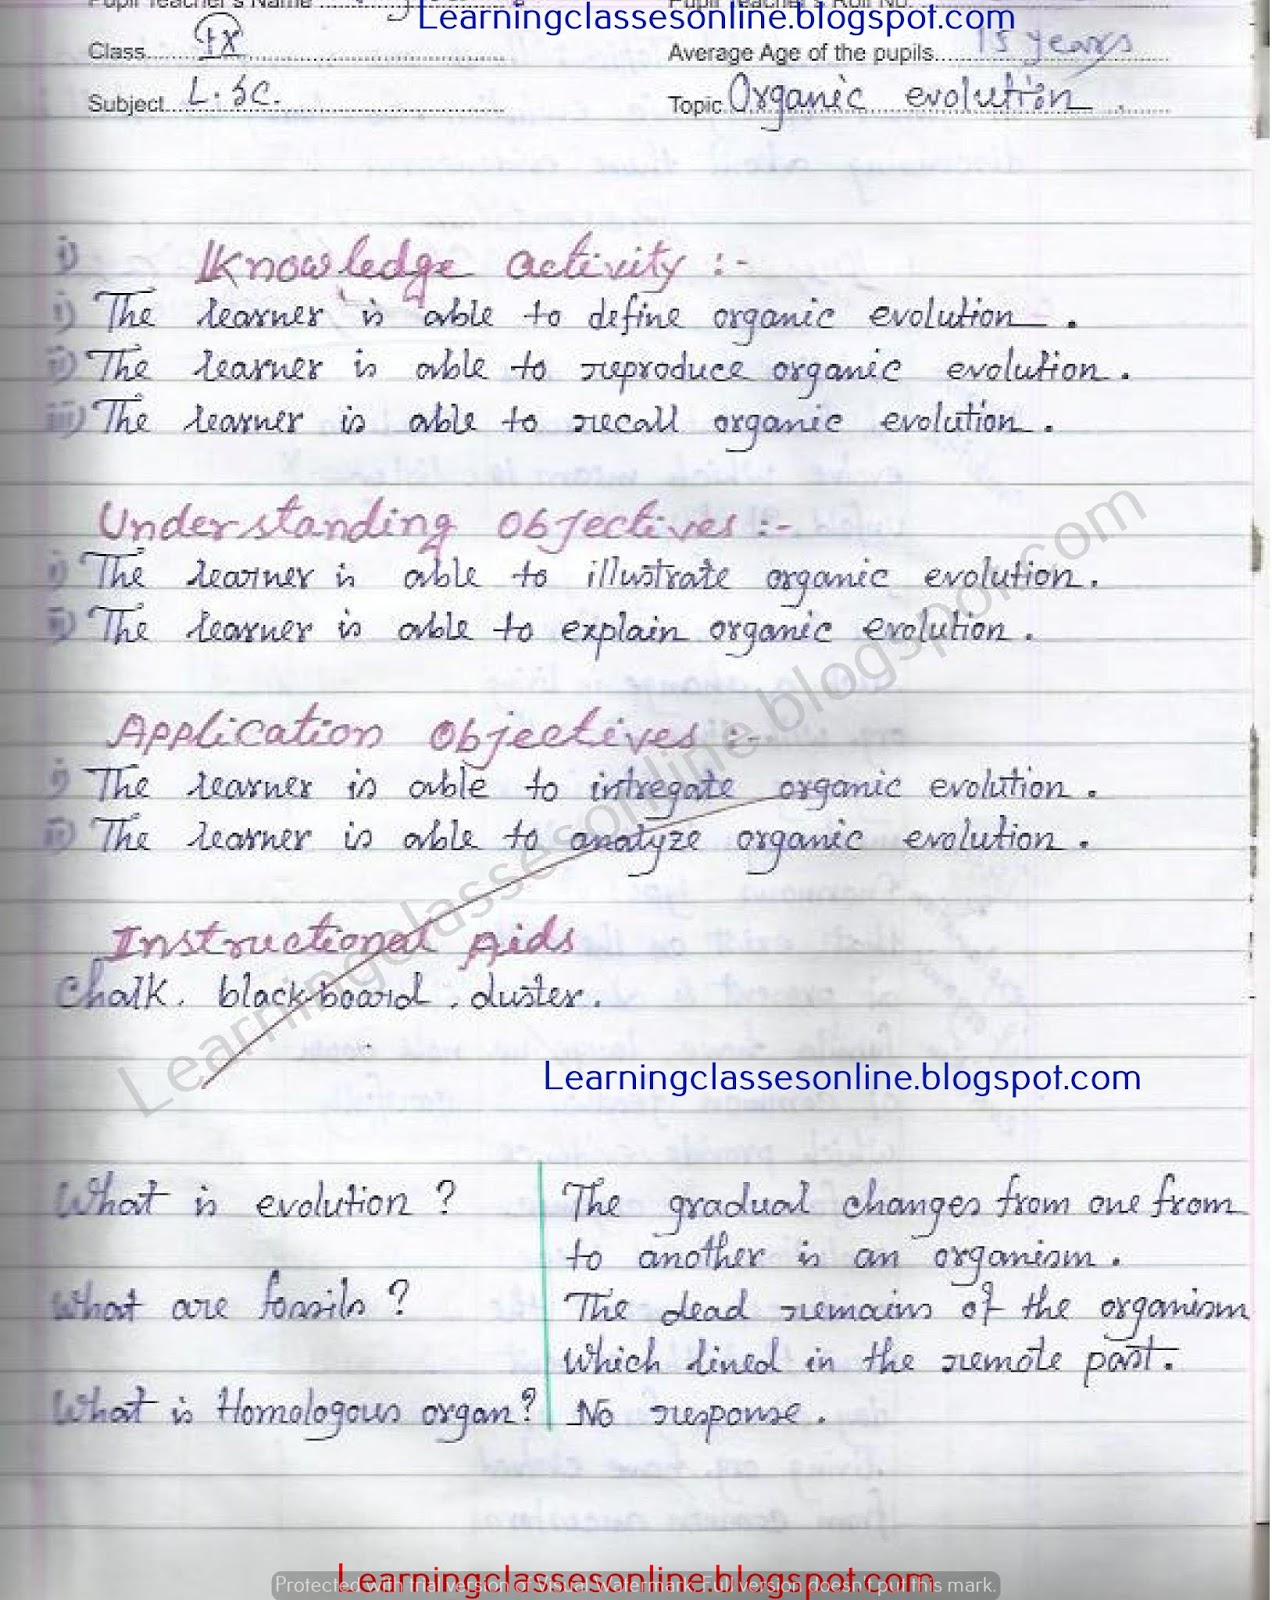 Pupil Teacher's Name Pupil Teacher's Roll No.
Learningclassesonline.blogspot.com
Class IX Average Age of the pupils 15 years
Subject L.Sc. Topic Organic evolution.
i) Knowledge activity :-
i) The learner is able to define organic evolution.
ii) The learner is able to reproduce organic evolution.
iii) The learner is able to recall organic evolution.
Understanding objectives :-
i) The learner is able to illustrate organic evolution.
ii) The learner is able to explain organic evolution.
Application objectives :-
i) The learner is able to intregate organic evolution.
ii) The learner is able to analyze organic evolution.
Instructional Aids
Chalk, blackboard, duster.
Learningclassesonline.blogspot.com
Learningclassesonline.blogspot.com
What is evolution? The gradual changes from one from
to another is an organism.
What are fossils? The dead remains of the organism
which lined in the remote past.
What is Homologous organ? No response.
Learningclassesonline.blogspot.com
Protected with trial version of Visual Watermark. Full version doesn't put this mark.